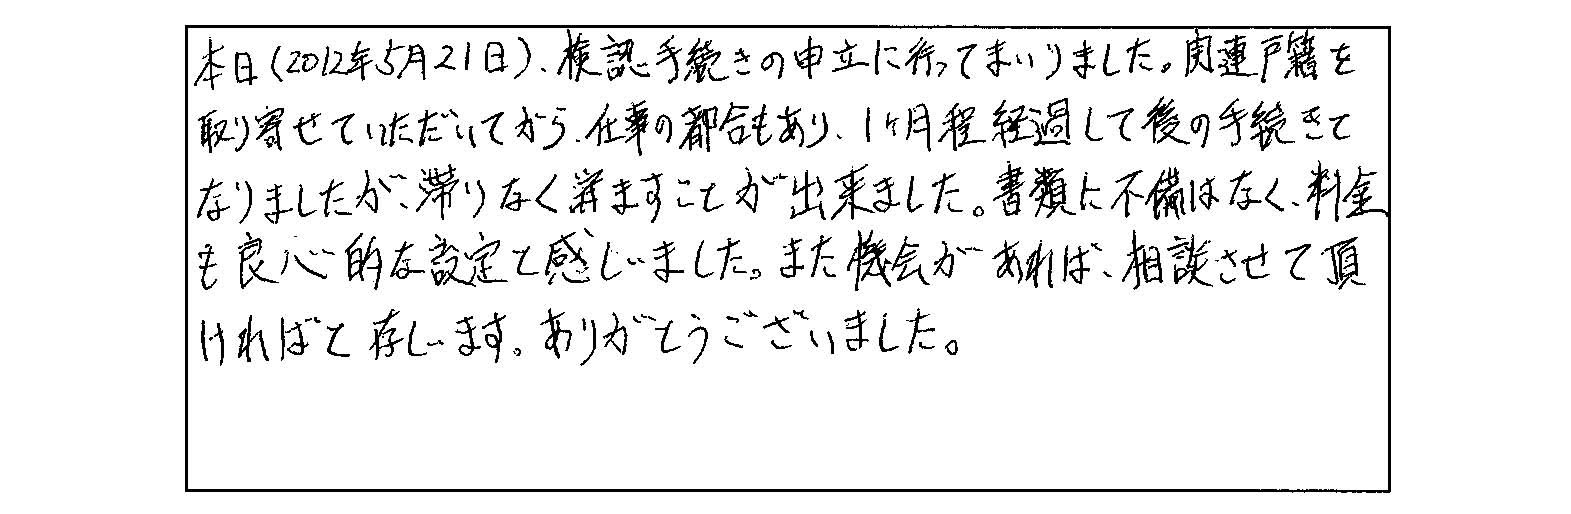 本日(2012年5月21日)、検認手続きの申立に行ってまいりました。関連戸籍を
取り寄せていただいてから、仕事の都合もあり、1ヶ月程経過して後の手続きと
なりましたが、滞りなく済ますことが出来ました。書類に不備はなく、料金
も良心的な設定と感じました。また機会があれば、相談させて頂
ければと存じます。ありがとうございました。